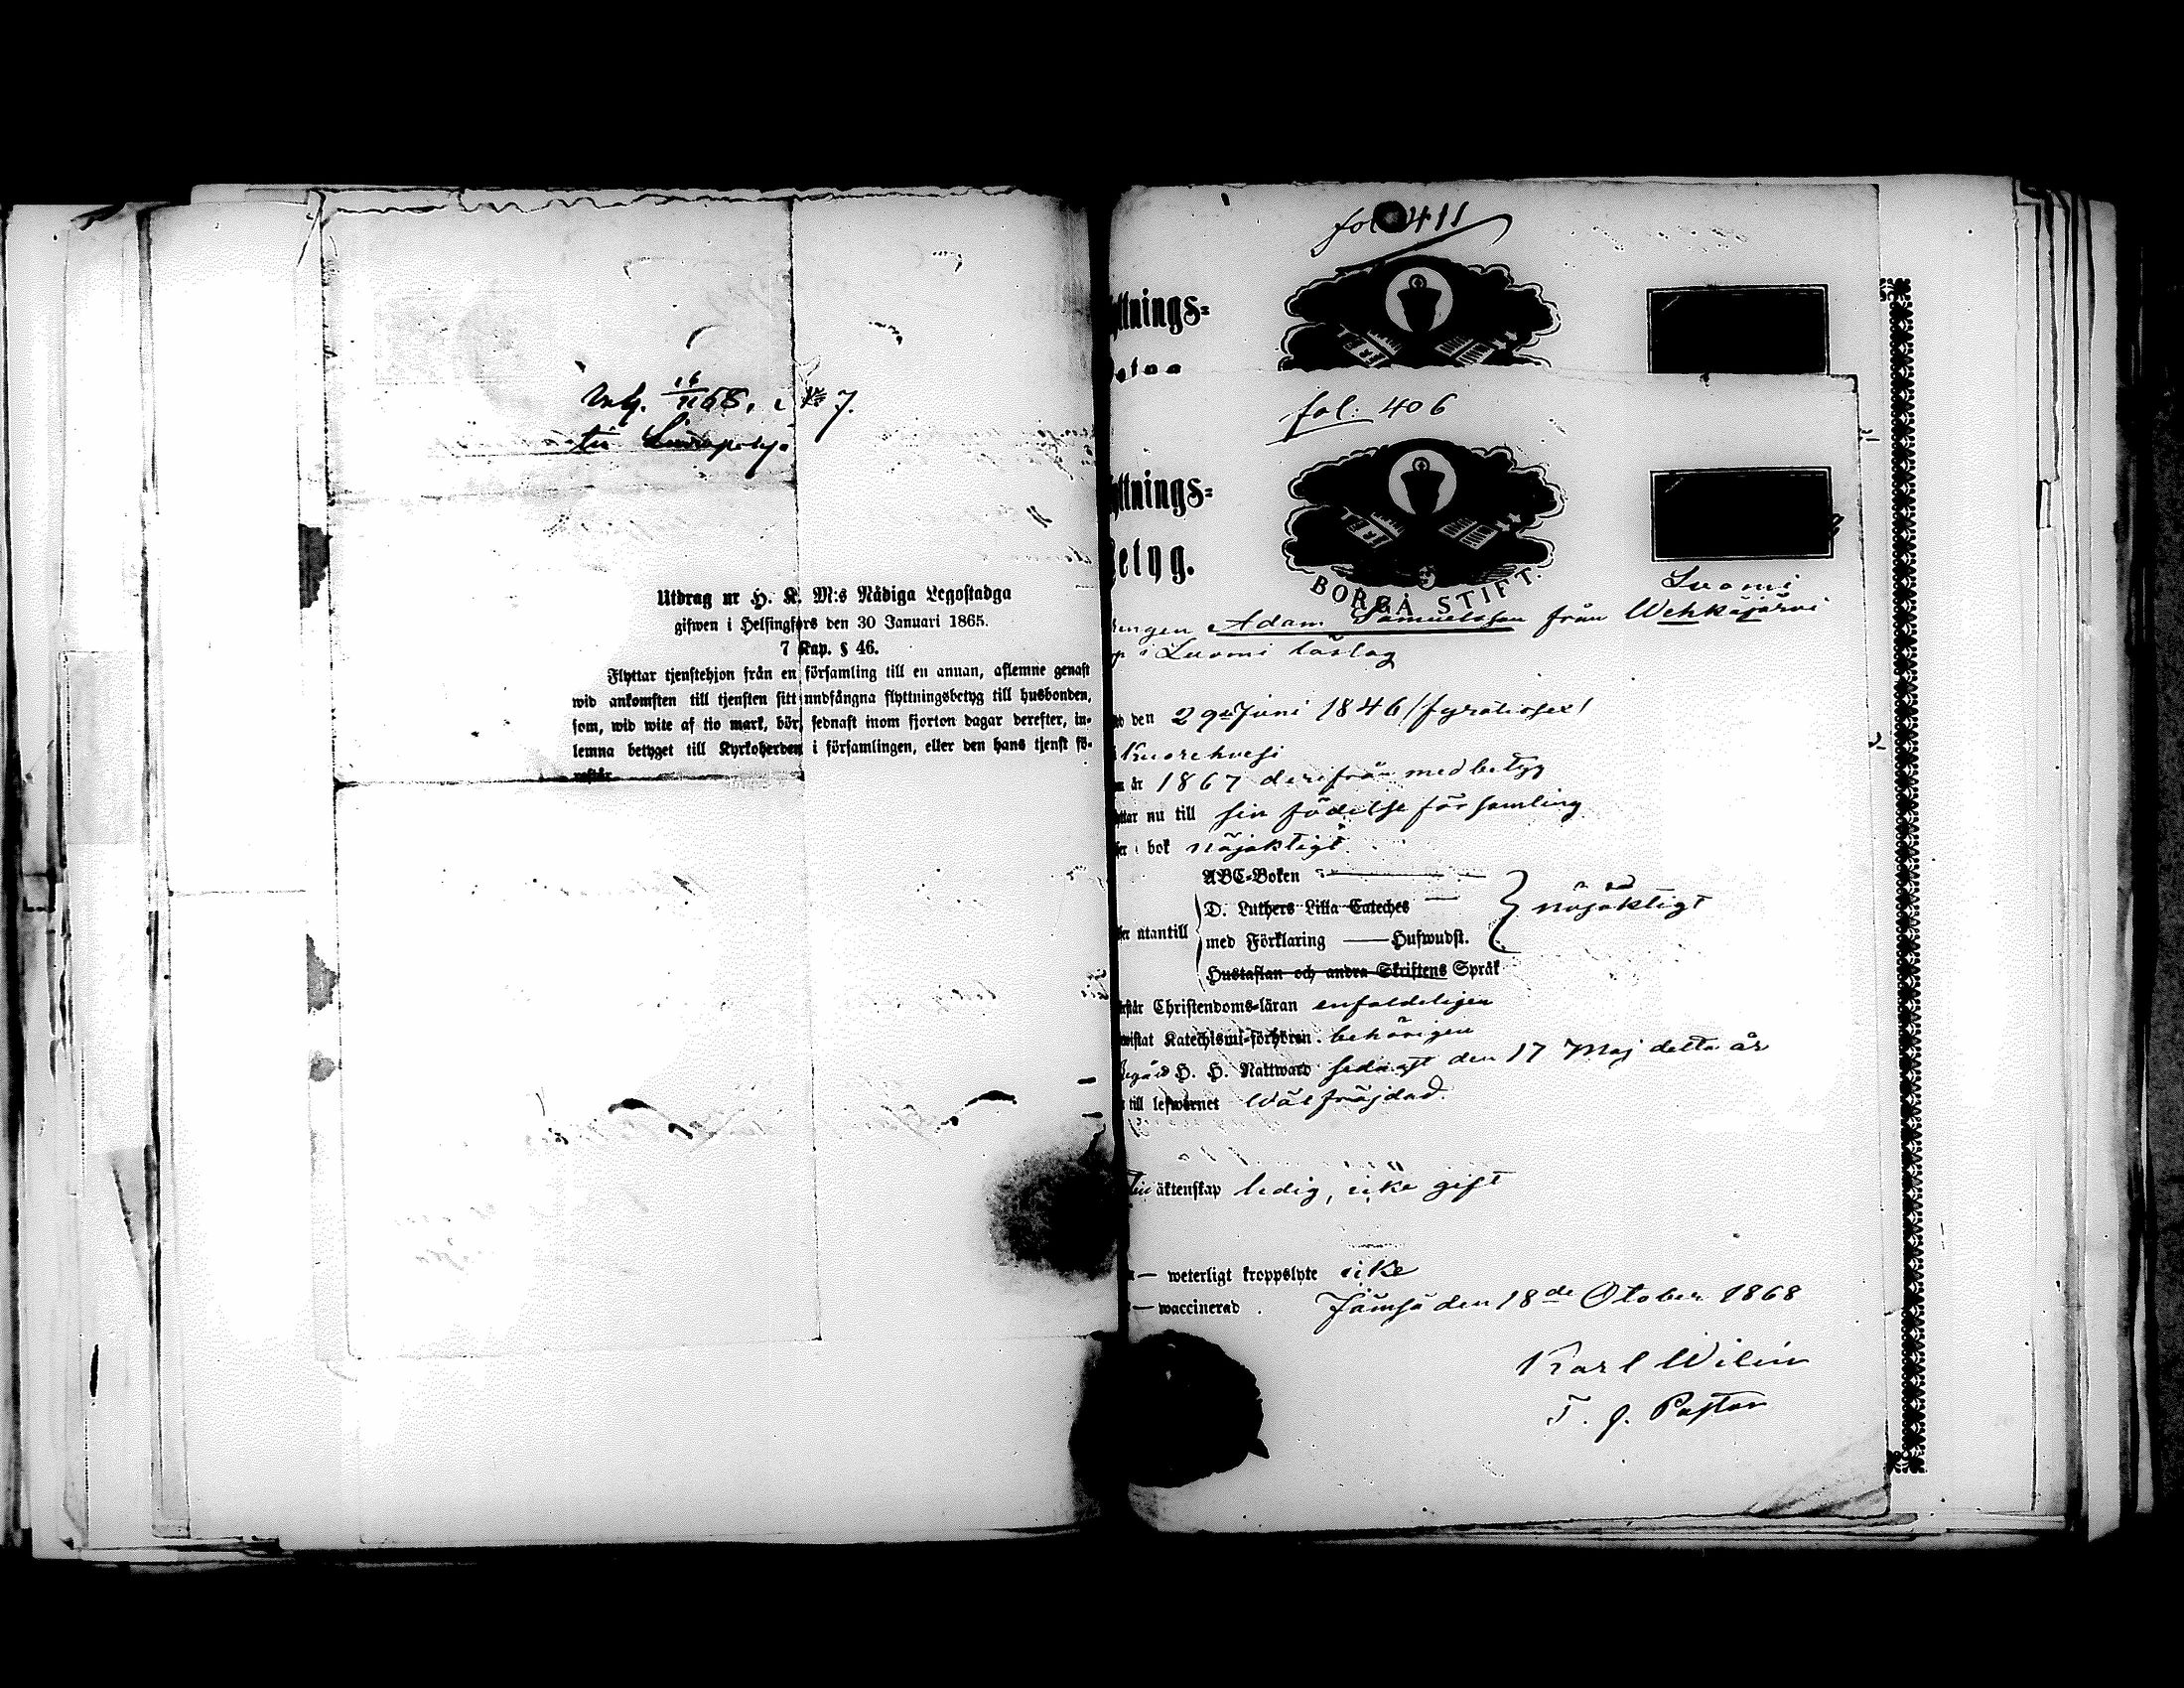 16/11 68. № 7.
till
Utdrag ur H. K. M:s Nådiga Legostadga
gifwen i Helsingfors den 30 Januari 1865.
7 Kap. § 46.
Flyttar tjenstehjon från en församling till en annan, aflemne genast
wid ankomsten till tjensten sitt undfångna flyttningsbetyg till husbonden,
som, wid wite af tio mark, bör sednast inom fjorton dagar derefter, in-
lemna betyget till Kyrkoherden i församlingen, eller den hans tjenst fö-
restår.
fol 411
ttnings-
fol: 406
ttnings-
etyg.
BORGÅ STIFT.
Luomi
engen Adam Samuelsson från Wehkajärvi
i Luomi låslag
den 29de Juni 1846 /fyratiosex/
Kuorehvesi
år 1867 derifrån med betyg
ttar nu till sin födelse församling
bok nöjaktigt
ABC-Boken
D. Luthers Lilla Cateches
med Förklaring — Hufwudst. nöjaktigt
utantill
Hustaflan och andra Skriftens Språk
står Christendoms-läran enfaldeligen
wistat Katechismi-förhören behörigen
H. H. Nattward sednast den 17 Maj detta år
till lefwernet Wälfräjdad.
äktenskap ledig, icke gift
— weterligt kroppslyte icke
— waccinerad
Jämsä den 18de Otober 1868
Karl Wilén
T. f. Pastor